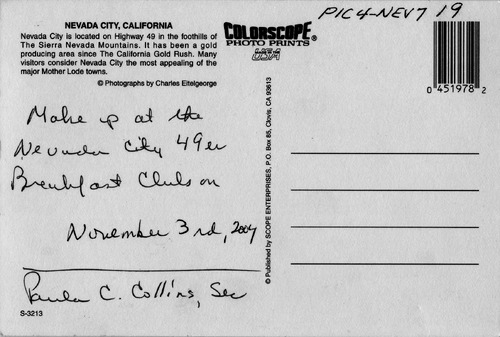 PIC4-NEV7 19
NEVADA CITY, CALIFORNIA
Nevada City is located on Highway 49 in the foothills of
The Sierra Nevada Mountains. It has been a gold
producing area since The California Gold Rush. Many
visitors consider Nevada City the most appealing of the
major Mother Lode towns.
© Photographs by Charles Eitelgeorge
COLORSCOPE®
PHOTO PRINTS
USA
0 451978 2
Make up at the
Nevada City 49er
Breakfast Club on
November 3rd, 2004
Paula C. Collins, Sec
S-3213
© Published by SCOPE ENTERPRISES, P.O. Box 85, Clovis, CA 93613